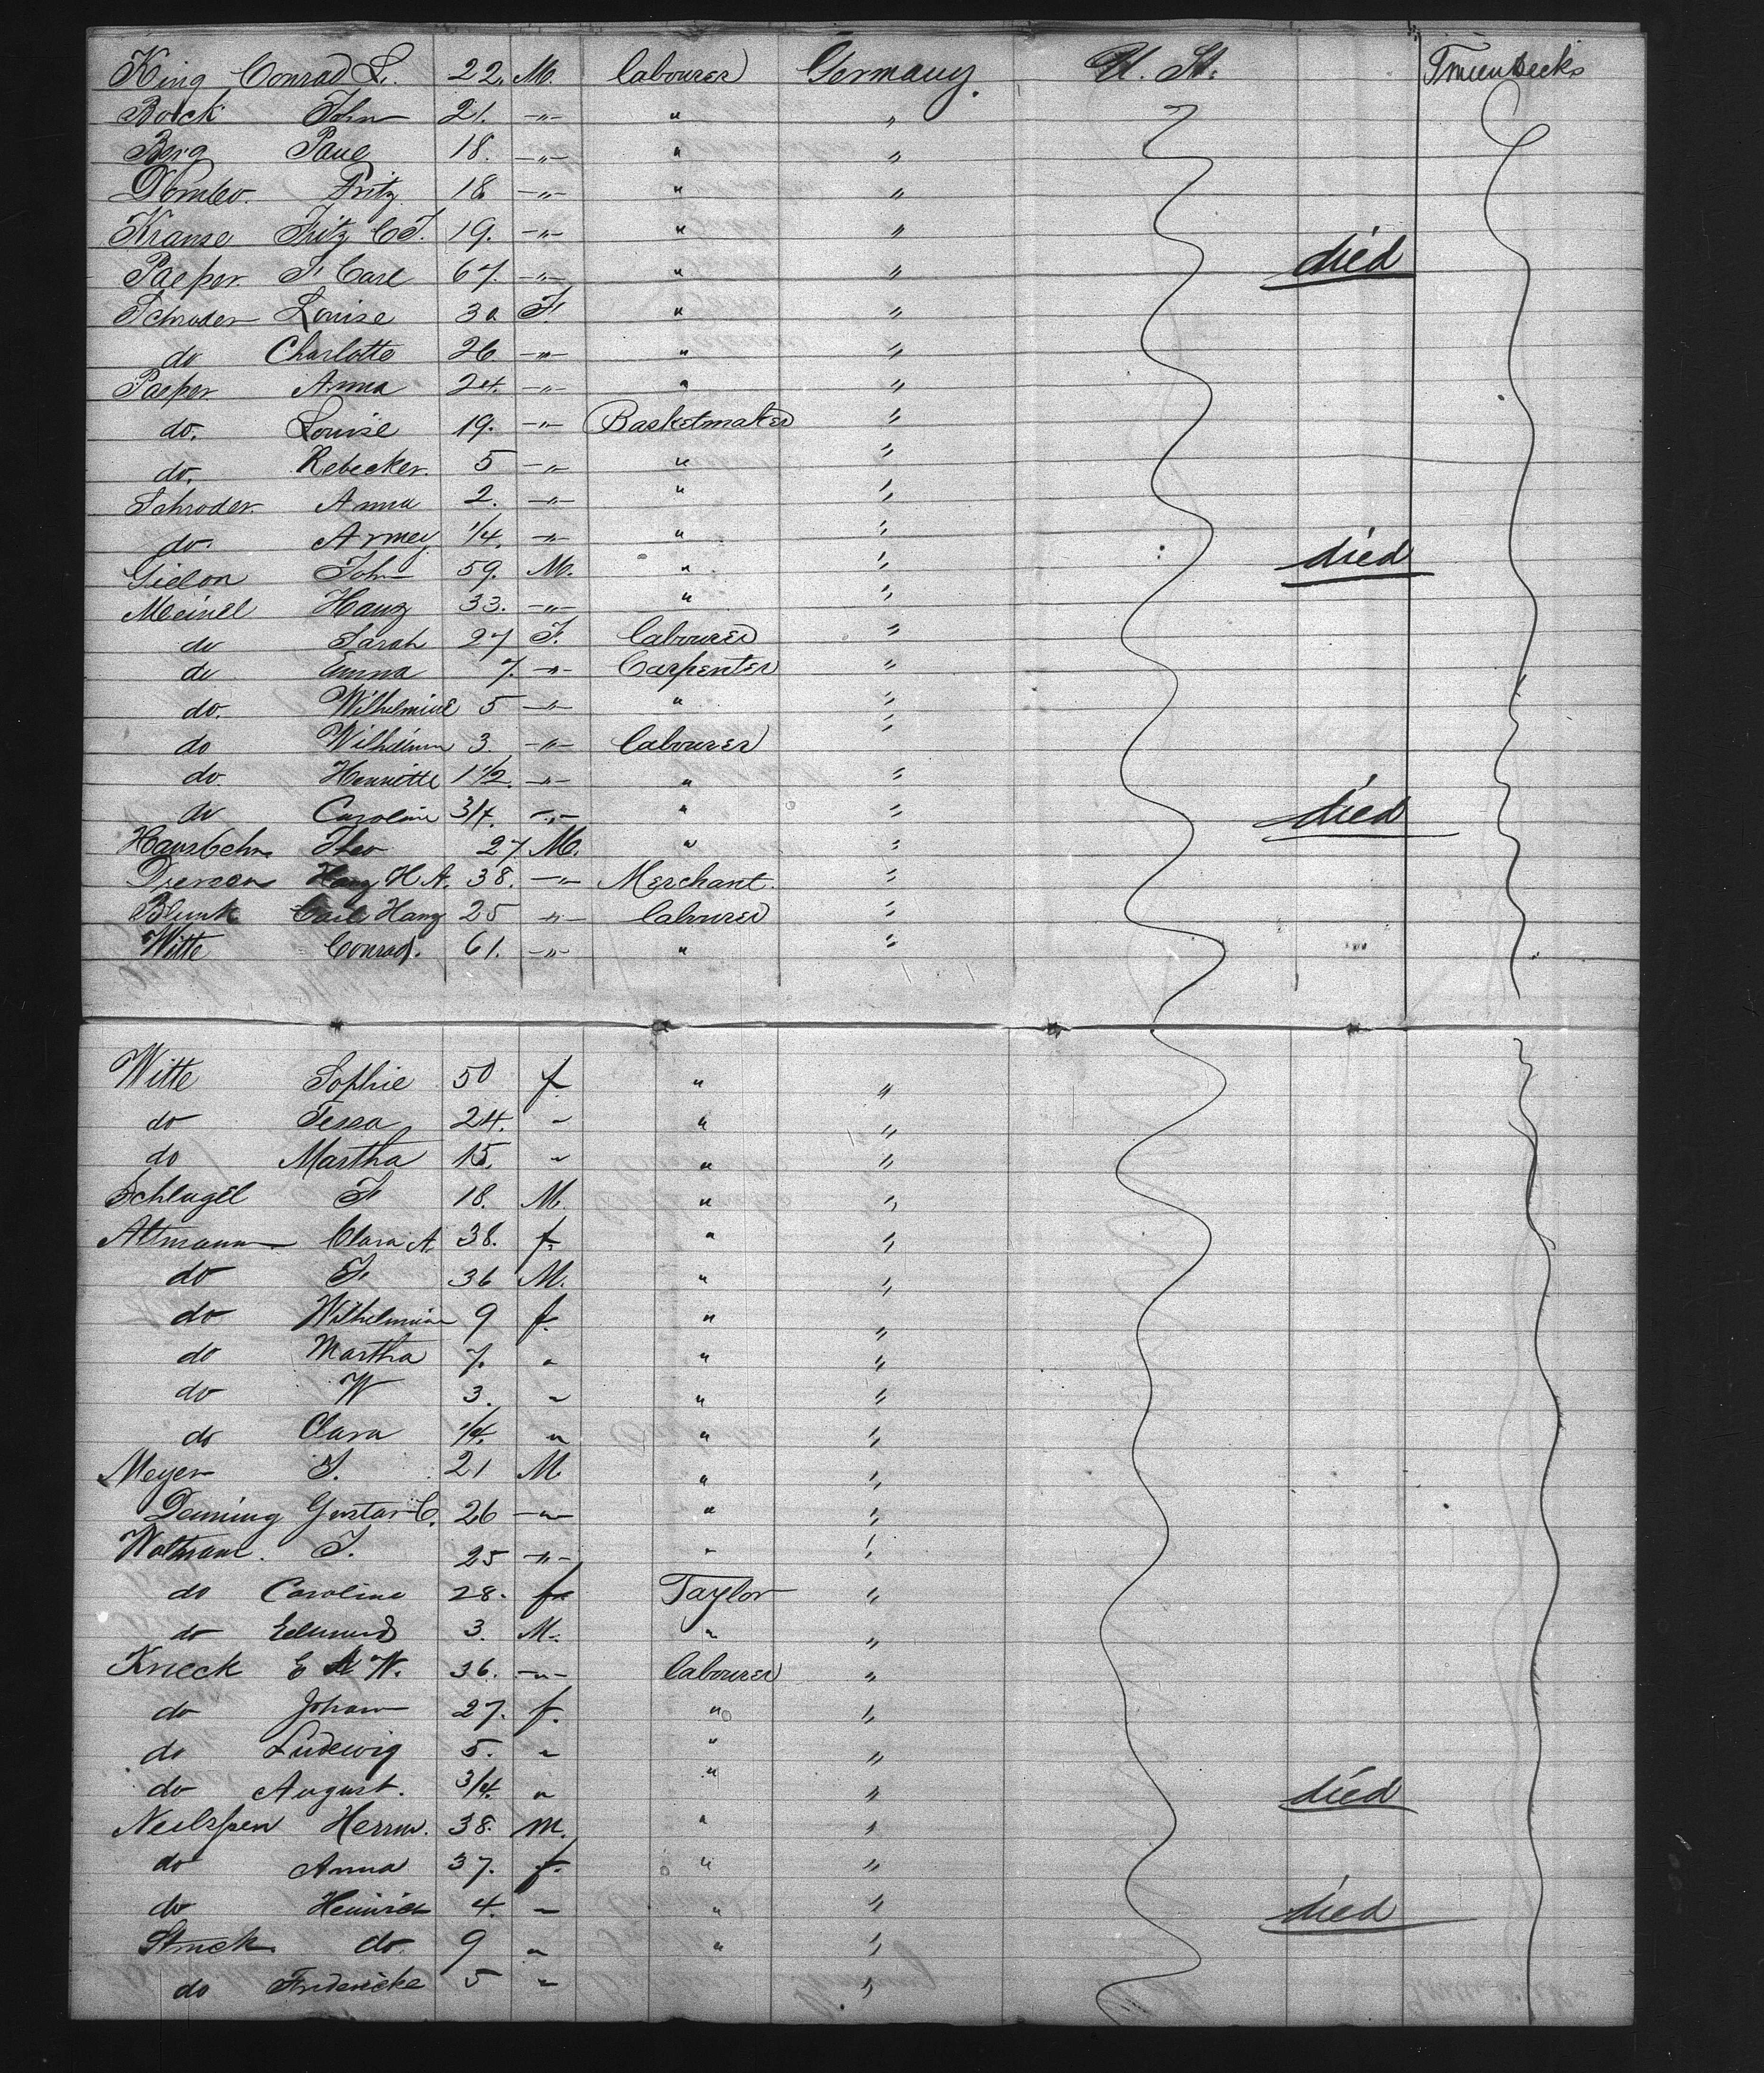 King Conrad L. 22. M. labourer Germany. U. St. Tweendecks
Bock John 21. -"- " "
Berg Paul 18. -"- " "
Dombo. Fritz 18 -"- " "
Krause Fritz C F. 19. -"- " "
Paeper F. Carl 67. -"- " " died
Schroder Louise 30 F. " "
do Charlotte 26 -"- " "
Paeper Anna 24. -"- " "
do. Louise 19. -"- Basketmaker "
do. Rebecker. 5 -"- " "
Schroder. Anna 2. -"- " "
do. Armey 1/4. -"- " " died
Gielon John 59. M. " "
Meinel Hang 33. -"- " "
do Sarah 27 F. labourer "
do Emma 7. -"- Carpenter "
do. Wilhelmine 5 -"- " "
do 3. -"- labourer "
do. Henriette 1 1/2. -"- " "
do Caroline 3/4. -"- " " died
Theo 27 M. " "
Hang H. A. 38. -"- Merchant. "
Blunk Carl Hang 25 -"- labourer "
Witte Conrad. 61. -"- " "
Witte Sophie 50 f " "
do 24. " " "
do Martha 15. " " "
Schlugel F 18. M. " "
Altmann Clara A. 38. f. " "
do F. 36 M. " "
do Wilhelmine 9 f. " "
do Martha 7. " " "
do W 3. " " "
do Clara 1/4. " " "
Meyer F. 21 M. " "
Deining Gustav C. 26 -"- " "
F. 25 -"- " "
do Caroline 28. f. Taylor "
do Edmund 3. M. " "
Krieck E W. 36. -"- labourer "
do Johann 27. f. " "
do Ludewig 5. " " "
do August. 3/4. " " " died
Herrm. 38. M. " "
do Anna 37. f. " "
do Heinrich 4. " " " died
Struck do 9 " " "
do Fredericke 5 " "